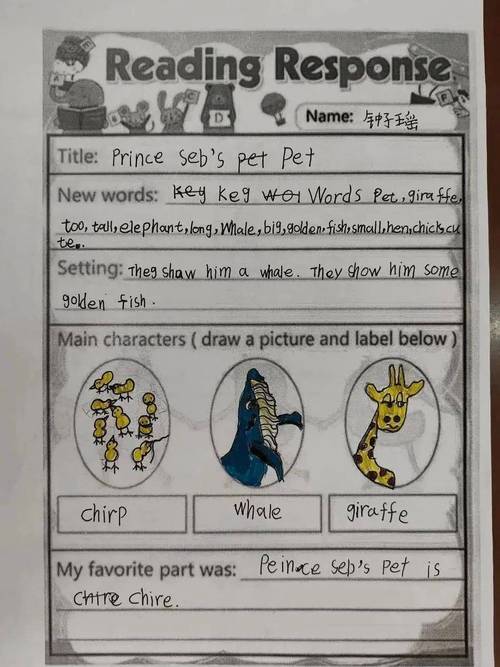 Reading Response
Name: 钟子瑶
Title: Prince Seb's pet Pet
New words: key keg wor Words Pet., giraffe,
too, tall, elephant, long, Whale, big, golden, fish, small, hen, chick, cu
te..
Setting: They shaw him a whale. They show him some
golden fish.
Main characters ( draw a picture and label below )
chirp whale giraffe
My favorite part was: Peince Seb's Pet is
chire chire.